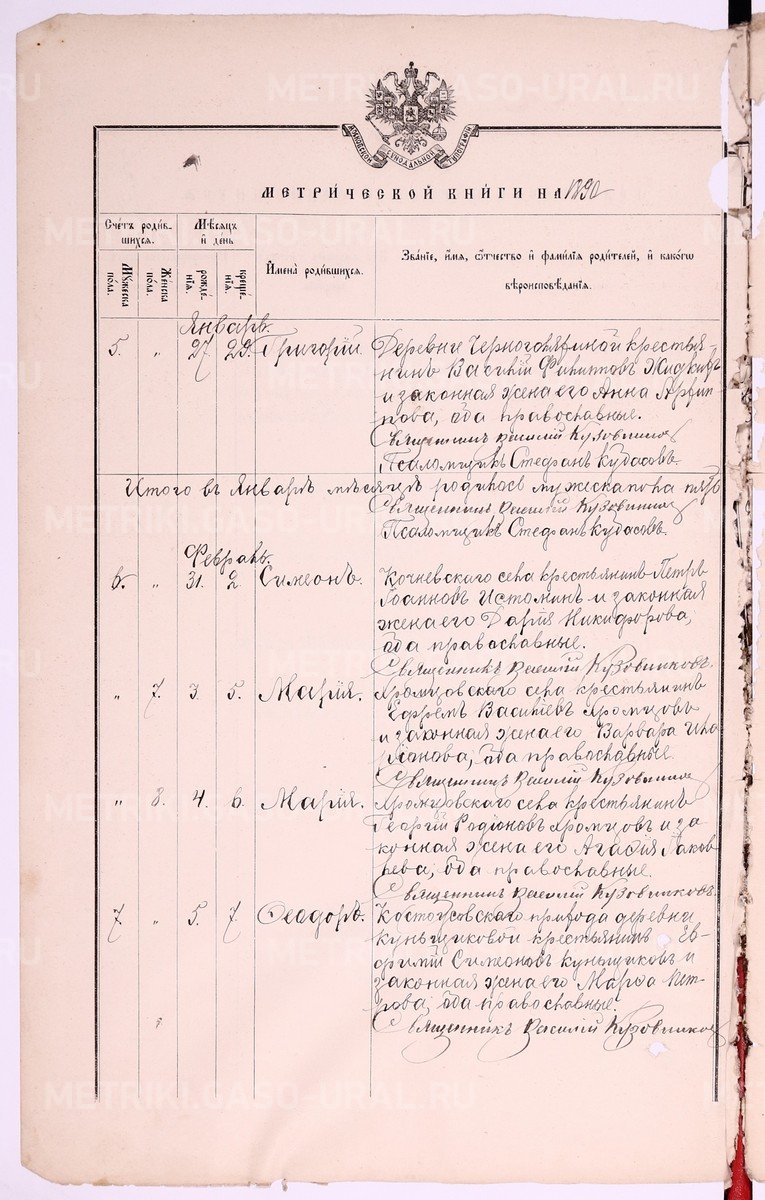 METRIKI.GASO-URAL.RU
МОСКОВСКОЙ СѴНОДАЛЬНОЙ ТИПОГРАФІИ
МЕТРИ́ЧЕСКОЙ КНИ́ГИ НА 1890
Сче́тъ роди́в-
шихся.
Мѣсяцъ
и҆ де́нь
Мꙋжеска
по́ла.
Же́нска
по́ла.
рожде́-
нїѧ.
креще́-
нїѧ.
И҆мена̀ роди́вшихся.
Зва́нїе, и҆́мя, ѻ҆́тчество и҆ фами́лїя роди́телей, и҆ како́гѡ
вѣроисповѣ́данїя.
Январь.
5. " 27 29. Григорій. Деревни Черноголяфиной крестья-
нинъ Василій Филиповъ
и законная жена его Анна
пова, оба православные.
Священникъ Василій Кузовников
Псаломщикъ Стефанъ Кудасовъ.
Итого въ Январѣ мѣсяцѣ родилось мужеска пола пять
Священникъ Василій Кузовников
Псаломщикъ Стефанъ Кудасовъ.
Февраль.
6. " 31. 2 Симеонъ. Кочневскаго села крестьянинъ Петръ
Іоанновъ Истоминъ и законная
жена его Дарія Никифорова;
оба православные.
Священникъ Василій Кузовниковъ.
" 7. 3. 5. Марія. Хромцовскаго села крестьянинъ
Ефремъ Василіевъ Хромцовъ
и законная жена его Варвара
оба православные.
Священникъ Василій Кузовников
" 8. 4. 6. Марія. Хромцовскаго села крестьянинъ
Георгій Родіоновъ Хромцовъ и за
конная жена его Агафія Іаков
лева; оба православные.
Священникъ Василій Кузовниковъ.
7 " 5. 7. Ѳеодоръ. Костоусовскаго прихода деревни
Куньщиковой крестьянинъ Ев-
фимій Симеоновъ Куньщиковъ и
законная жена его Марѳа Пет-
рова; оба православные.
Священникъ Василій Кузовников